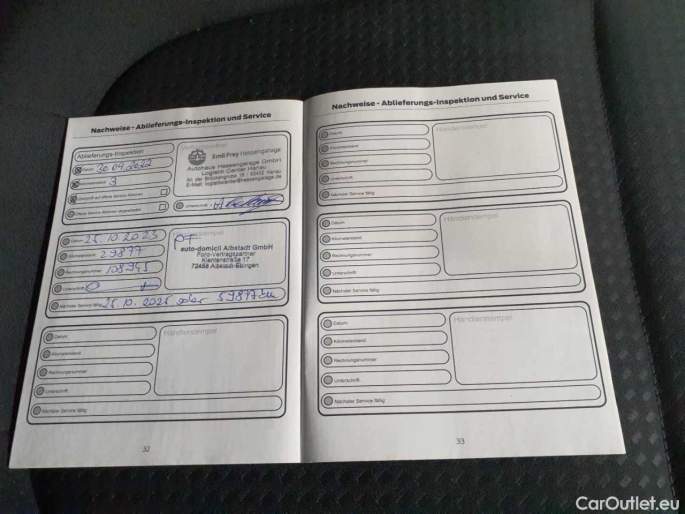 Nachweise - Ablieferungs-Inspektion und Service
Ablieferungs-Inspektion
Datum 30.09.2022
Kilometerstand 3
Unterschrift
Emil Frey Hessengarage
Autohaus Hessengarage GmbH
Logistik Center Hanau
Datum 25.10.2023
Kilometerstand 29877
Rechnungsnummer 108945
Unterschrift
Nächster Service fällig 25.10.2025 oder 59877 km
PT
auto-domicil Albstadt GmbH
Ford-Vertragspartner
Kientenstraße 17
72458 Albstadt-Ebingen
Datum
Kilometerstand
Rechnungsnummer
Unterschrift
Nächster Service fällig
Händlerstempel
32
Nachweise - Ablieferungs-Inspektion und Service
Datum
Kilometerstand
Rechnungsnummer
Unterschrift
Nächster Service fällig
Händlerstempel
Datum
Kilometerstand
Rechnungsnummer
Unterschrift
Nächster Service fällig
Händlerstempel
Datum
Kilometerstand
Rechnungsnummer
Unterschrift
Nächster Service fällig
Händlerstempel
33
CarOutlet.eu